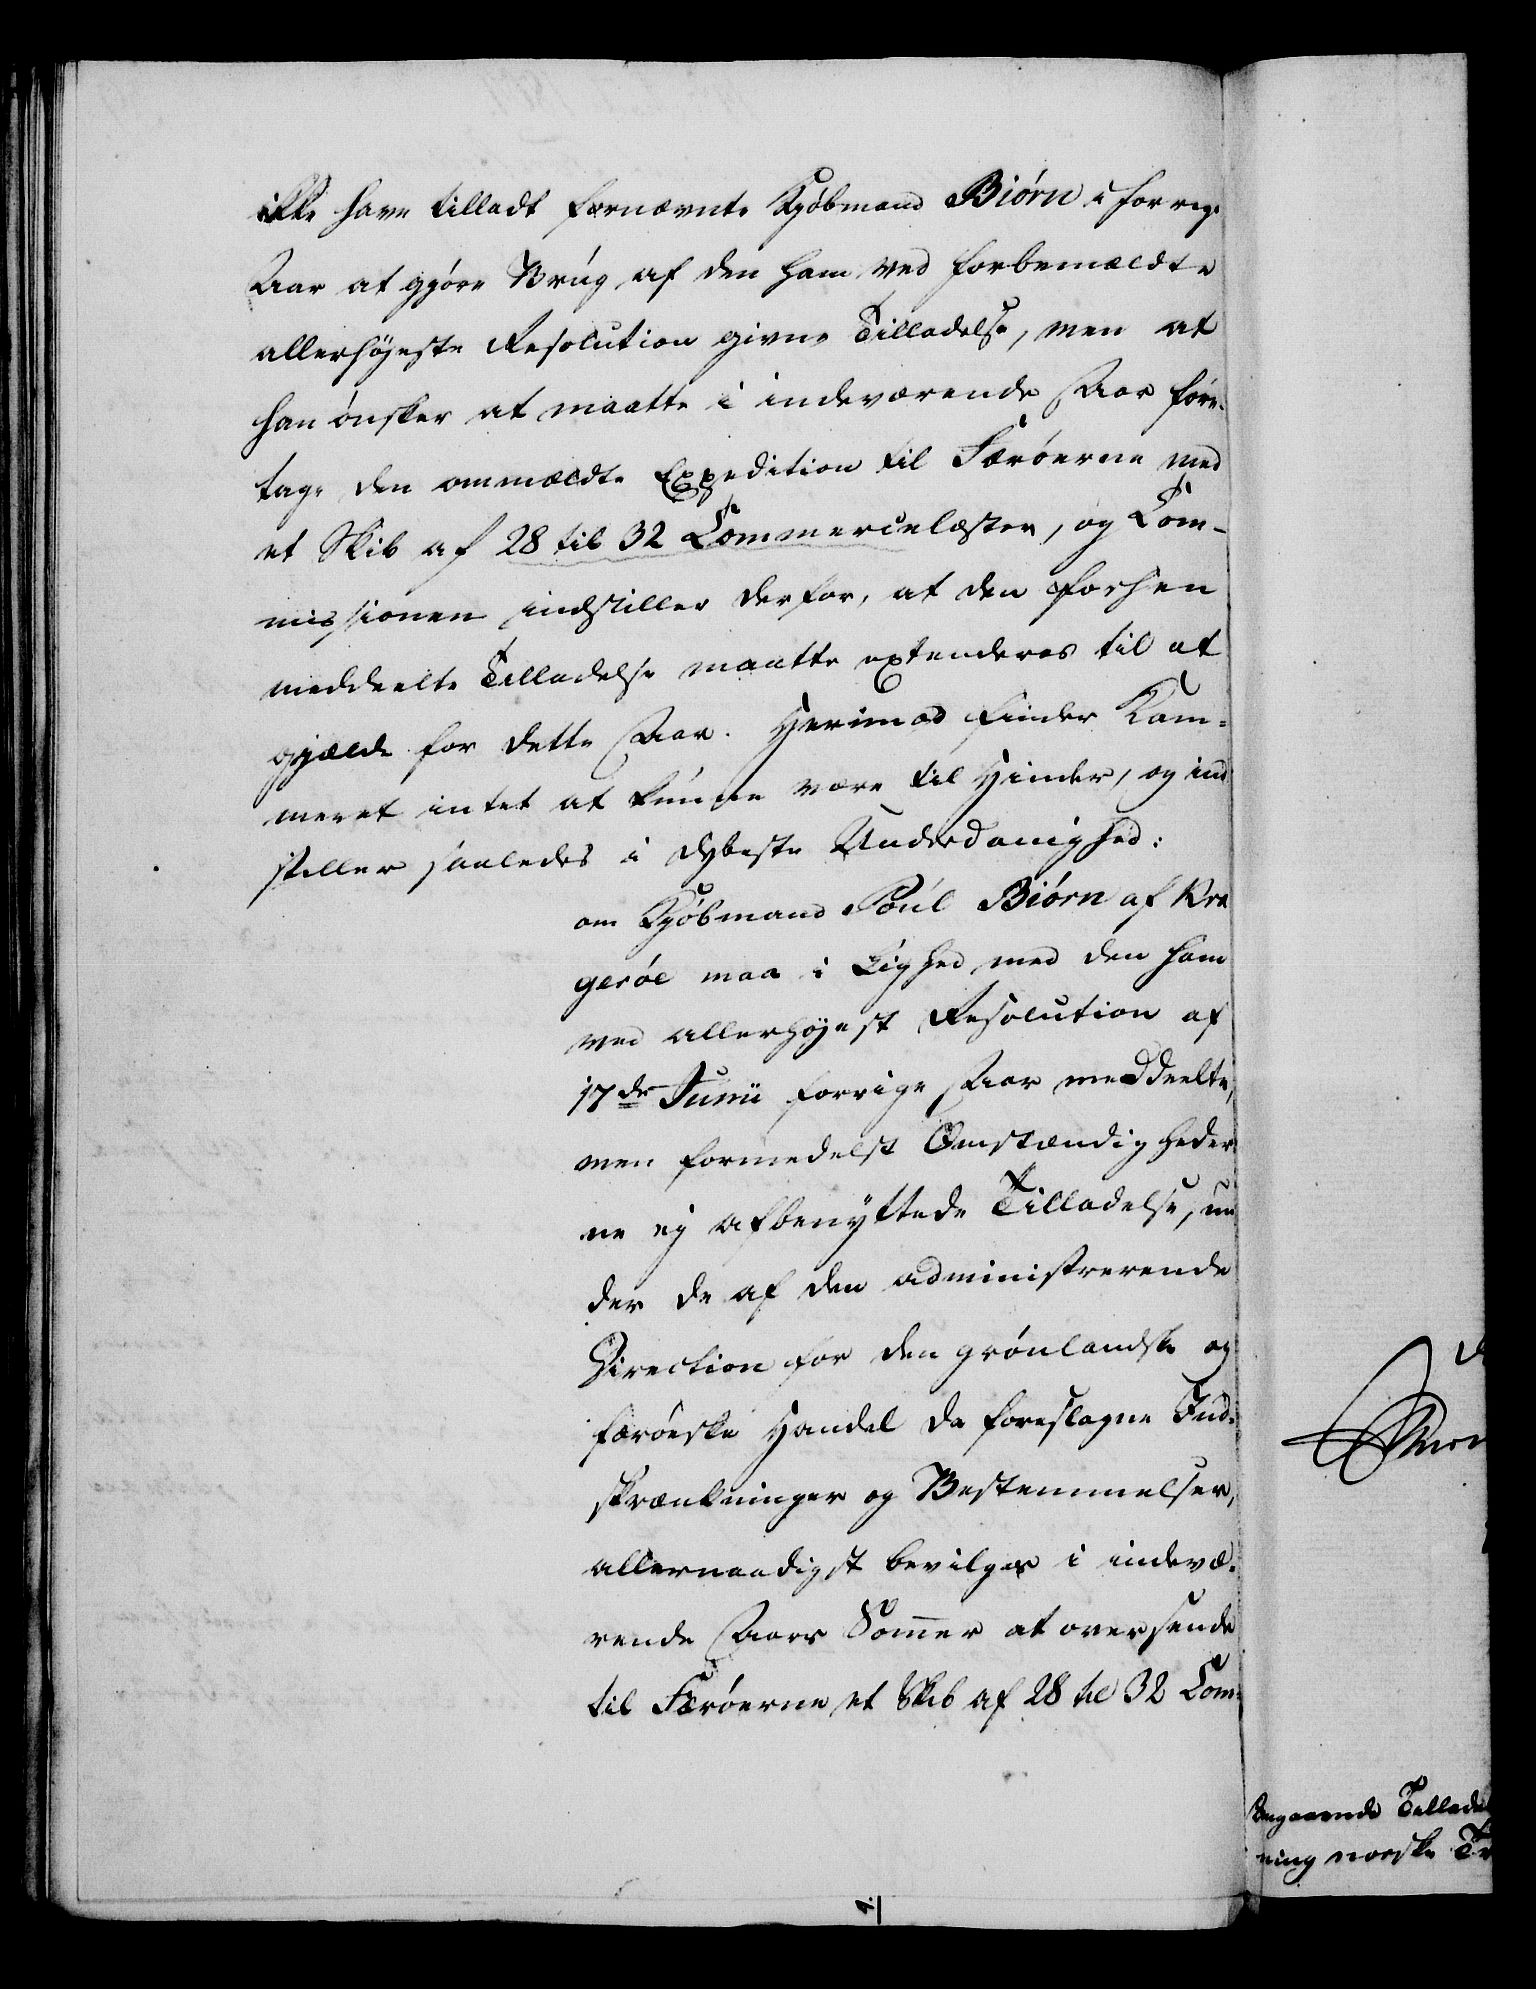 ikke have tilladt fornævnte Kjöbmand Biörn i forrige
Aar at gjöre Brug af den ham ved forbemældte
allerhöjeste Resolution givne Tilladelse, men at
han önsker at maatte i indeværende Aar fore-
tage den ommældte Expedition til Færöerne med
et Skib af 28 til 32 Commercelæster, og Com-
missionen indstiller derfor, at den forhen
meddeelte Tilladelse maatte extenderes til at
gjælde for dette Aar. Herimod finder Kam-
meret intet at kunne være til Hinder, og ind
stiller saaledes i dybeste Underdanighed:
om Kjöbmand Poul Biörn af Kra
geröe maa i Lighed med den ham
ved allerhöjest Resolution af
17de Junii forrige Aar meddeelte,
men formedelst Omstændigheder
ne ej afbenyttede Tilladelse, un
der de af den administrerende
Direction for den grönlandske og
færöeske Handel da foreslagne Ind-
skrænkninger og Bestemmelser,
allernaadigst bevilges i indevæ-
rende Aars Som̅er at oversende
til Færöerne et Skib af 28 til 32 Com-
Angaaende Tillade
ning norske